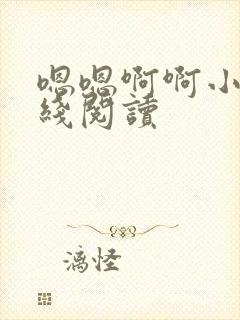 嗯嗯啊啊小
綫閱讀
漓怪